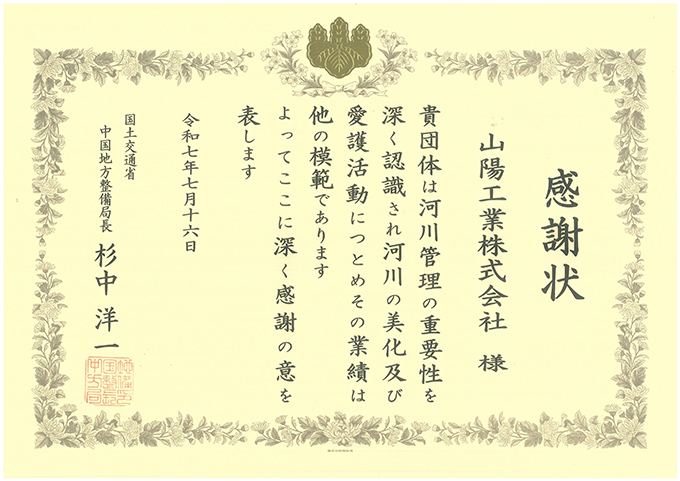 感謝状
山陽工業株式会社 様
貴団体は河川管理の重要性を
深く認識され河川の美化及び
愛護活動につとめその業績は
他の模範であります
よってここに深く感謝の意を
表します
令和七年七月十六日
国土交通省
中国地方整備局長 杉中洋一